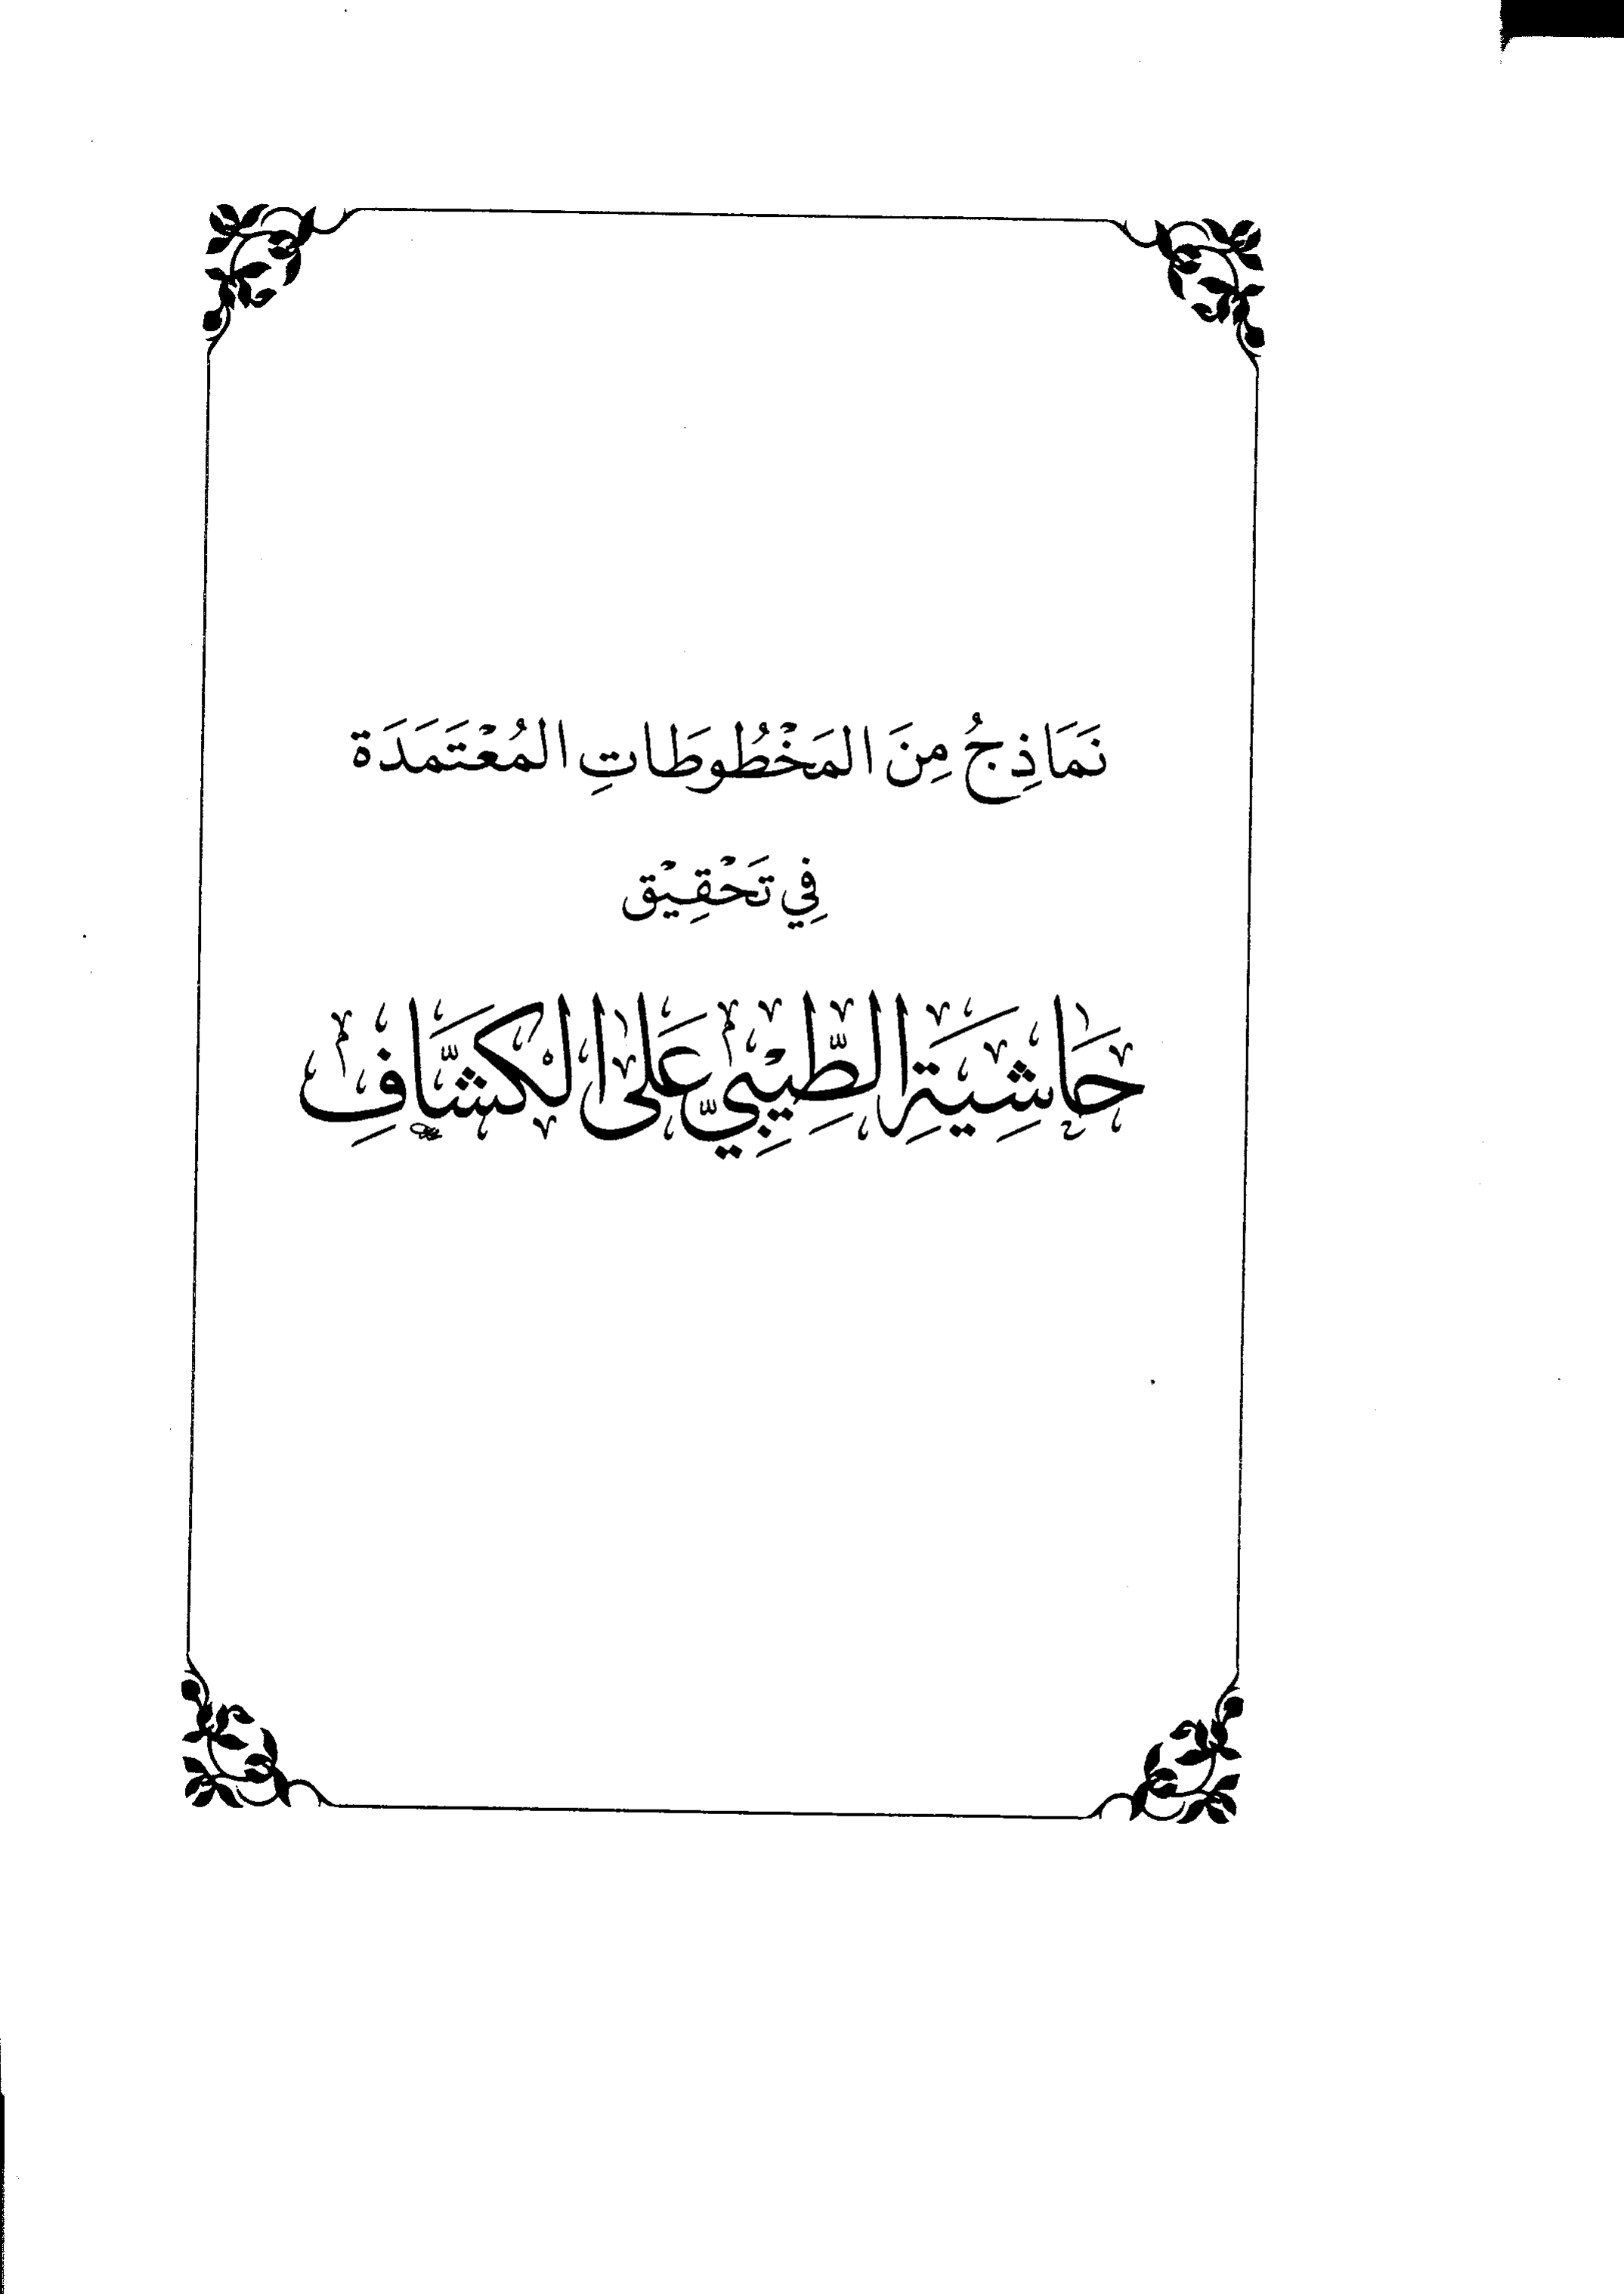 نَمَاذِجُ مِنَ المَخْطُوطَاتِ المُعْتَمَدَة
فِي تَحْقِيْق
حَاشِيَةِ الطِّيْبِيِّ عَلَى الْكَشَّافِ